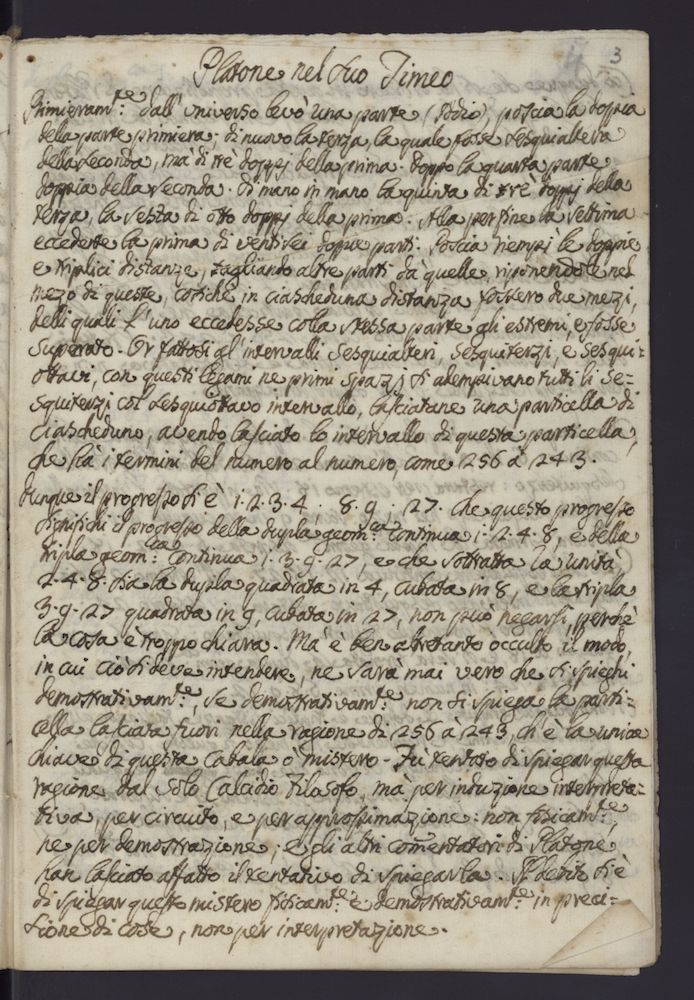 3
Platone nel suo Timeo
Primieram.te dall'universo levò una parte (Iddio), poscia la doppia
della parte primiera; di nuovo la terza, la quale fosse sesquialtera
della seconda, mà di trè doppj della prima. doppo la quarta parte
doppia della seconda. di mano in mano la quinta di trè doppj della
terza, la sesta di otto doppj della prima. Alla per fine la settima
eccedette la prima di ventisei doppie parti. Poscia riempì le doppie
e triplici distanze, tagliando altre parti da quelle, riponendole nel
mezo di queste, cosiche in ciascheduna distanza fossero due mezi,
delli quali l'uno eccedesse colla stessa parte gli estremi, e fosse
superato. Or fattosi gl'intervalli sesquialteri, sesquiterzi, e sesqui=
ottavi, con questi legami ne primi spazj si adempivano tutti li se=
squiterzi col sesquiottavo intervallo, lasciatane una particella di
ciascheduno, avendo lasciato lo intervallo di questa particella,
che stà i termini del numero al numero, come 256 à 243.
dunque il progresso si è 1. 2. 3. 4. 8. 9, 27. che questo progresso
significhi il progresso della dupla geom:ca continua 1. 2. 4. 8, e della
tripla geom:ca continua 1. 3. 9. 27, e che sottratta la unità,
2. 4. 8. sia la dupla quadrata in 4, cubata in 8, e la tripla
3. 9. 27 quadrata in 9, cubata in 27, non può negarsi, perchè
la cosa è troppo chiara. Mà è ben altretanto occulto il modo,
in cui ciò si deve intendere, ne sarà mai vero che si spieghi
demostrativam.te, se demostrativam.te non si spiega la parti=
cella lasciata fuori nella ragione di 256 à 243, ch'è la unica
chiave di questa Cabala ò mistero. Fù tentato di spiegar questa
ragione dal solo Calcidio Filosofo, mà per induzione interpreta=
tiva, per circuito, e per approssimazione: non fisicam.te,
ne per demostrazione; e gli altri comentatori di Platone
han lasciato affatto il tentativo di spiegarla. Il debito si è
di spiegar questo mistero fisicam.te e demostrativam.te in preci=
sione di cose, non per interpretazione.